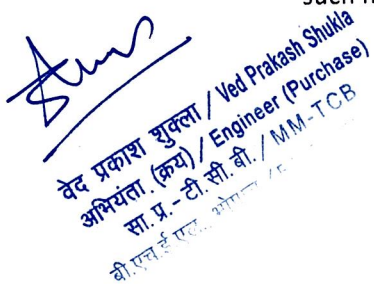 वेद प्रकाश शुक्ला / Ved Prakash Shukla
अभियंता (क्रय) / Engineer (Purchase)
सा. प्र. - टी. सी. बी. / MM-TCB
बी.एच.ई.एल.,